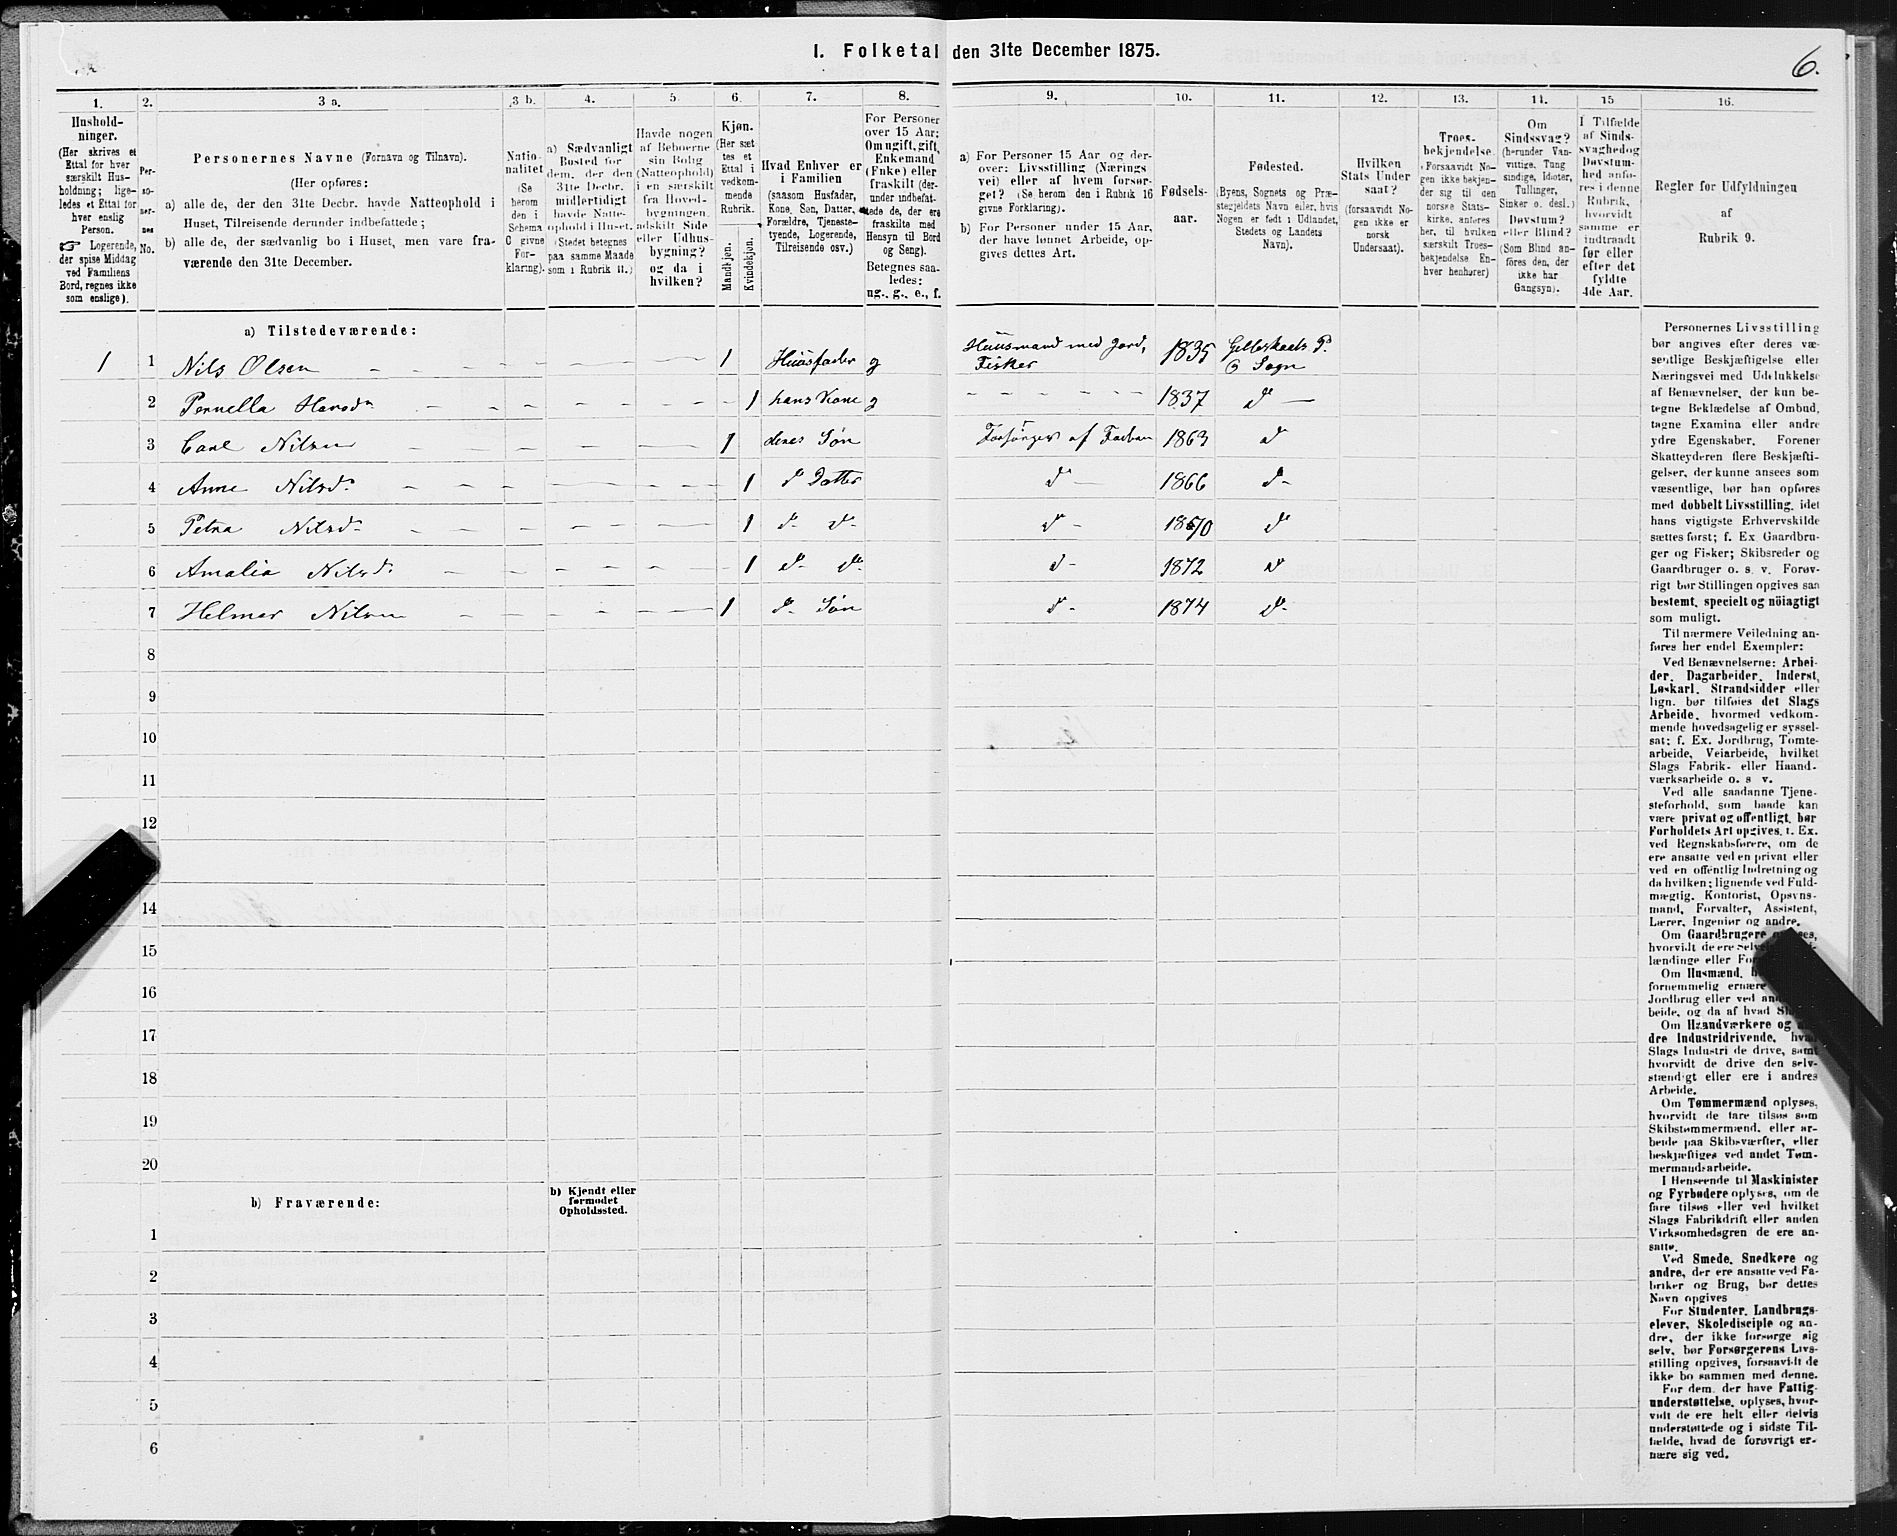 1. Folketal den 31te December 1875.
6.
1.
2.
3 a.
3 b.
4.
5.
6.
7.
8.
9.
10.
11.
12.
13.
14.
15
16.
Hushold-
ninger.
(Her skrives et
Ettal for hver
særskilt Hus-
holdning; lige-
ledes et Ettal for
hver enslig
Person.
☞ Logerende,
der spise Middag
ved Familiens
Bord, regnes ikke
som enslige).
Per-
so-
ner-
nes
No.
Personernes Navne (Fornavn og Tilnavn).
(Her opføres:
a) alle de, der den 31te Decbr. havde Natteophold i
Huset, Tilreisende derunder indbefattede;
b) alle de, der sædvanlig bo i Huset, men vare fra-
værende den 31te December.
Natio-
nalitet
(Se
herom
den i
Schema
C givne
For-
klaring).
a) Sædvanligt
Bosted for
dem, der den
31te Decbr.
midlertidigt
havde Natte-
ophold i Huset.
(Stedet betegnes
paa samme Maade
som i Rubrik 11.)
Havde nogen
af Beboerne
sin Bolig
(Natteophold)
i en særskilt
fra Hoved-
bygningen
adskilt Side
eller Udhus-
bygning?
og da i
hvilken?
Kjøn.
(Her sæt
tes et
Ettal i
vedkom-
mende
Rubrik.
Mandkjøn.
Kvindekjøn.
Hvad Enhver er
i Familien
(saasom Husfader,
Kone, Søn, Datter,
Forældre, Tjeneste-
tyende, Logerende,
Tilreisende osv.)
For Personer
over 15 Aar:
Om ugift, gift,
Enkemand
(Enke) eller
fraskilt (der-
under indbefat-
tede de, der ere
fraskilte med
Hensyn til Bord
og Seng).
Betegnes saa-
ledes:
ug., g., e., f.
a) For Personer 15 Aar og der-
over: Livsstilling (Nærings
vei) eller af hvem forsør-
get? (Se herom den i Rubrik 16
givne Forklaring).
b) For Personer under 15 Aar,
der have lønnet Arbeide, op-
gives dettes Art.
Fødsels-
aar.
Fødested.
(Byens, Sognets og Præ-
stegjeldets Navn eller, hvis
Nogen er født i Udlandet,
Stedets og Landets
Navn).
Hvilken
Stats Under
saat?
(forsaavidt No-
gen ikke er
norsk
Undersaat).
Troes-
bekjendelse.
(Forsaavidt No-
gen ikke bekjen-
der sig til den
norske Stats-
kirke, anføres
her, til hvilken
særskilt Troes-
bekjendelse En-
hver henhører)
Om
Sindssvag?
(herunder Van-
vittige, Tung
sindige, Idioter,
Tullinger,
Sinker o. desl.)
Døvstum?
eller Blind?
(Som Blind an-
føres den, der
ikke har
Gangsyn).
I Tilfælde
af Sinds-
svaghed og
Døvstum-
hed anfø-
res i denne
Rubrik,
hvorvidt
samme er
indtraadt
før eller
efter det
fyldte
4de Aar.
Regler for Udfyldningen
af
Rubrik 9.
a) Tilstedeværende:
1 1 Nils Olsen 1 Huusfader g Huusmand med Jord, Fisker 1835 Gilleskaals P. & Sogn
2 Pernella Hansdr 1 hans Kone g 1837 do
3 Carl Nilsen 1 deres Søn Forsørges af Faderen 1863 do
4 Anne Nilsdr 1 do Datter do 1866 do
5 Petra Nilsdr 1 do do do 1870 do
6 Amalia Nilsdr 1 do do do 1872 do
7 Helmer Nilsen 1 do Søn do 1874 do
8
9
10
11
12
14
15
16
17
18
19
20
b) Fraværende:
b) Kjendt eller
formodet
Opholdssted.
1
2
3
4
5
6
Personernes Livsstilling
bør angives efter deres væ-
sentlige Beskjæftigelse eller
Næringsvei med Udelukkelse
af Benævnelser, der kun be-
tegne Beklædelse af Ombud,
tagne Examina eller andre
ydre Egenskaber. Forener
Skatteyderen flere Beskjæfti-
gelser, der kunne ansees som
væsentlige, bør han opføres
med dobbelt Livsstilling, idet
hans vigtigste Erhvervskilde
sættes først; f. Ex Gaardbru-
ger og Fisker; Skibsreder og
Gaardbruger o. s. v. Forøv-
rigt bør Stillingen opgives saa
bestemt, specielt og nöiagtigt
som muligt.
Til nærmere Veiledning an-
føres her endel Exempler:
Ved Benævnelserne: Arbei-
der, Dagarbeider, Inderst,
Løskarl, Strandsidder eller
lign. bør tilføies det Slags
Arbeide, hvormed vedkom-
mende hovedsagelig er syssel-
sat; f. Ex. Jordbrug, Tomte-
arbeide, Veiarbeide, hvilket
Slags Fabrik- eller Haand-
værksarbeide o. s v.
Ved alle saadanne Tjene-
steforhold, som baade kan
være privat og offentligt, bør
Forholdets Art opgives, t. Ex.
ved Regnskabsførere, om de
ere ansatte ved en privat eller
ved en offentlig Indretning og
da hvilken; lignende ved Fuld-
mægtig, Kontorist, Opsyns-
mand, Forvalter, Assistent,
Lærer, Ingeniør og andre.
Om Gaardbrugere
hvorvidt de ere
lændinge eller
Om Husmænd,
fornemmelig ernære
Jordbrug eller ved
beide, og da af hvad
Om Haandværkere og
dre Industridrivende, hvad
Slags Industri de drive, samt
hvorvidt de drive den selv-
stændigt eller ere i andres
Arbeide.
Om Tømmermænd oplyses,
hvorvidt de fare tilsøs som
Skibstømmermænd, eller ar-
beide paa Skibsværfter, eller
beskjæftiges ved andet Tøm-
mermandsarbeide.
I Henseende til Maskinister
og Fyrbødere oplyses, om de
fare tilsøs eller ved hvilket
Slags Fabrikdrift eller anden
Virksomhedsgren de ere an-
satte.
Ved Smede, Snedkere og
andre, der ere ansatte ved Fa-
briker og Brug, bør dettes
Navn opgives
For Studenter, Landbrugs-
elever, Skoledisciple og an-
dre, der ikke forsørge sig
selv, bør Forsørgerens Livs-
stilling opgives, forsaavidt de
ikke bo sammen med denne.
For dem, der have Fattig-
understøttelse, oplyses, hvor-
vidt de ere helt eller delvis
understøttede og i sidste Til-
fælde, hvad de forøvrigt er-
nære sig ved.